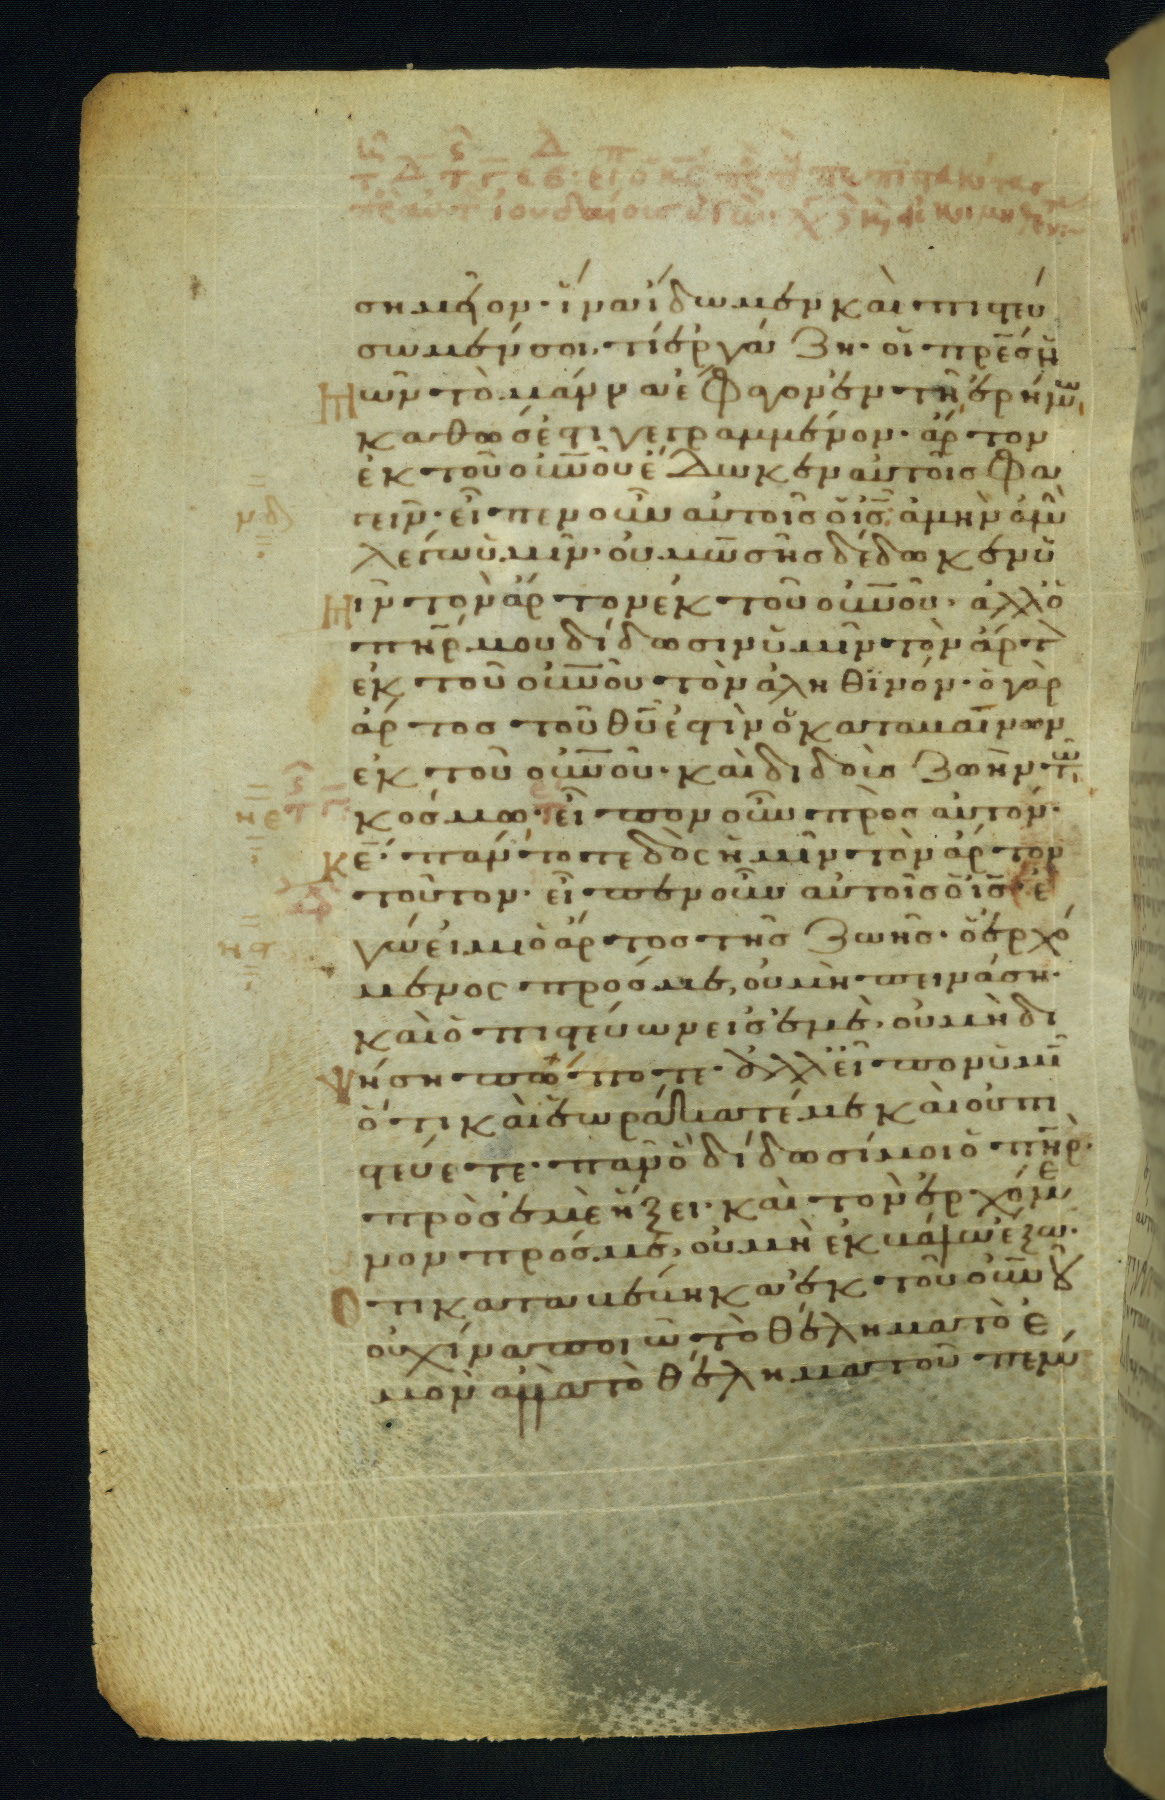 σημεῖον· ἵνα ἴδωμεν καὶ πιστεύ
σωμέν σοι· τί ἐργάζη· οἱ πρ̅ε̅ς ἡ
μῶν τὸ μάννα ἔφαγον ἐν τῆ ἐρήμω,
καθώς ἐστι γεγραμμένον· ἄρτον
ἐκ τοῦ οὐ̅νο̅υ ἔδωκεν αὐτοῖς φα
γεῖν· εἶπεν οὖν αὐτοῖς ὁ ι̅ς̅· ἀμὴν ἀμὴν
λέγω ὑμῖν· οὐ μω̅σῆς δέδωκεν ὑ
μῖν τὸν ἄρτον ἐκ τοῦ οὐ̅νο̅υ· ἀλλ' ὁ
π̅η̅ρ μου δίδωσιν ὑμῖν τὸν ἄρτον
ἐκ τοῦ οὐ̅νο̅υ τὸν ἀληθινόν· ὁ γὰρ
ἄρτος τοῦ θ̅υ̅ ἐστὶν ὁ καταβαίνων
ἐκ τοῦ οὐ̅νο̅υ· καὶ διδοὺς ζωὴν τῶ
κόσμω· εἶπον οὖν πρὸς αὐτόν·
κ̅ε̅· πάντοτε δὸς ἡμῖν τὸν ἄρτον
τοῦτον· εἶπεν οὖν αὐτοῖς ὁ ι̅ς̅· ἐ
γώ εἰμι ὁ ἄρτος τῆς ζωῆς· ὁ ἐρχό
μενος πρός με, οὐ μὴ πεινάση·
καὶ ὁ πιστεύων εἰς ἐμὲ, οὐ μὴ δι
ψήση πώποτε· ἀλλ' εἶπον ὑμῖν
ὅτι καὶ ἑωράκατέ με καὶ οὐ πι
στεύετε· πᾶν ὃ δίδωσί μοι ὁ π̅η̅ρ·
πρὸς ἐμὲ ἥξει· καὶ τὸν ἐρχόμε
νον πρός με, οὐ μὴ ἐκβάλω ἔξω·
ὅτι καταβέβηκα ἐκ τοῦ οὐ̅νο̅υ
οὐχ ἵνα ποιῶ τὸ θέλημα τὸ ἐ
μὸν ἀλλὰ τὸ θέλημα τοῦ πέμ